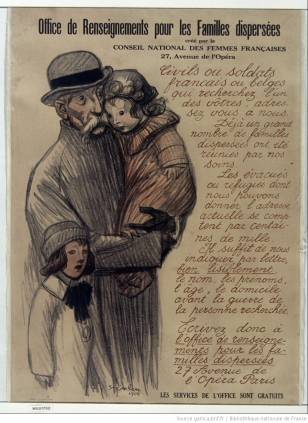 Office de Renseignements pour les Familles dispersées
créé par le
CONSEIL NATIONAL DES FEMMES FRANÇAISES
27, Avenue de l'Opéra
Civils ou soldats
français ou belges
qui recherchez l'un
des vôtres adres-
sez vous a nous.
Déja un grand
nombre de familles
dispersées ont été
réunies par nos
soins.
Les évacués
ou réfugiés dont
nous pouvons
donner l'adresse
actuelle se comp-
tent par centai-
nes de mille.
Il suffit de nous
indiquer par lettre,
bien lisiblement
le nom, les prénoms,
l'age, le domicile
avant la guerre de
la personne recherchée.
Ecrivez donc à
l'office de renseigne-
ments pour les fa-
milles dispersées
27 Avenue de
l'Opéra Paris
LES SERVICES DE L'OFFICE SONT GRATUITS
Source gallica.bnf.fr / Bibliothèque nationale de France